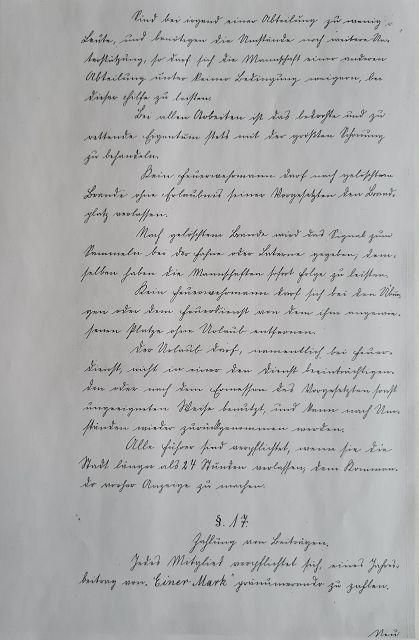 Sind bei irgend einer Abteilung zu wenig
Leute, und benötigen die Umstände noch weitere Un-
terstützung, so darf sich die Mannschaft einer anderen
Abteilung unter keiner Bedingung weigern, bei
dieser Hilfe zu leisten.
Bei allen Arbeiten ist das bedrohte und zu
rettende Eigentum stets mit der größten Schonung
zu behandeln.
Kein Feuerwehrmann darf nach gelöschtem
Brande ohne Erlaubnis seiner Vorgesetzten den Brand-
platz verlassen.
Nach gelöschtem Brande wird das Signal zum
Sammeln bei der Fahne oder Laterne gegeben, dem-
selben haben die Mannschaften sofort Folge zu leisten.
Kein Feuerwehrmann darf sich bei den Übun-
gen oder dem Feuerdienst von dem ihm angewie-
senen Platze ohne Urlaub entfernen.
Der Urlaub darf, namentlich bei Feuer-
dienst, nicht in einer den Dienst beeinträchtigen-
den oder nach dem Ermessen des Vorgesetzten sonst
ungeeigneten Weise benützt, und kann nach Um-
ständen wieder zurückgenommen werden.
Alle Führer sind verpflichtet, wenn sie die
Stadt länger als 24 Stunden verlassen, dem Komman-
do vorher Anzeige zu machen.
§. 17.
Zahlung von Beiträgen.
Jedes Mitglied verpflichtet sich, eines Jahres-
beitrag von "Einer Mark" pränumerando zu zahlen.
Neu